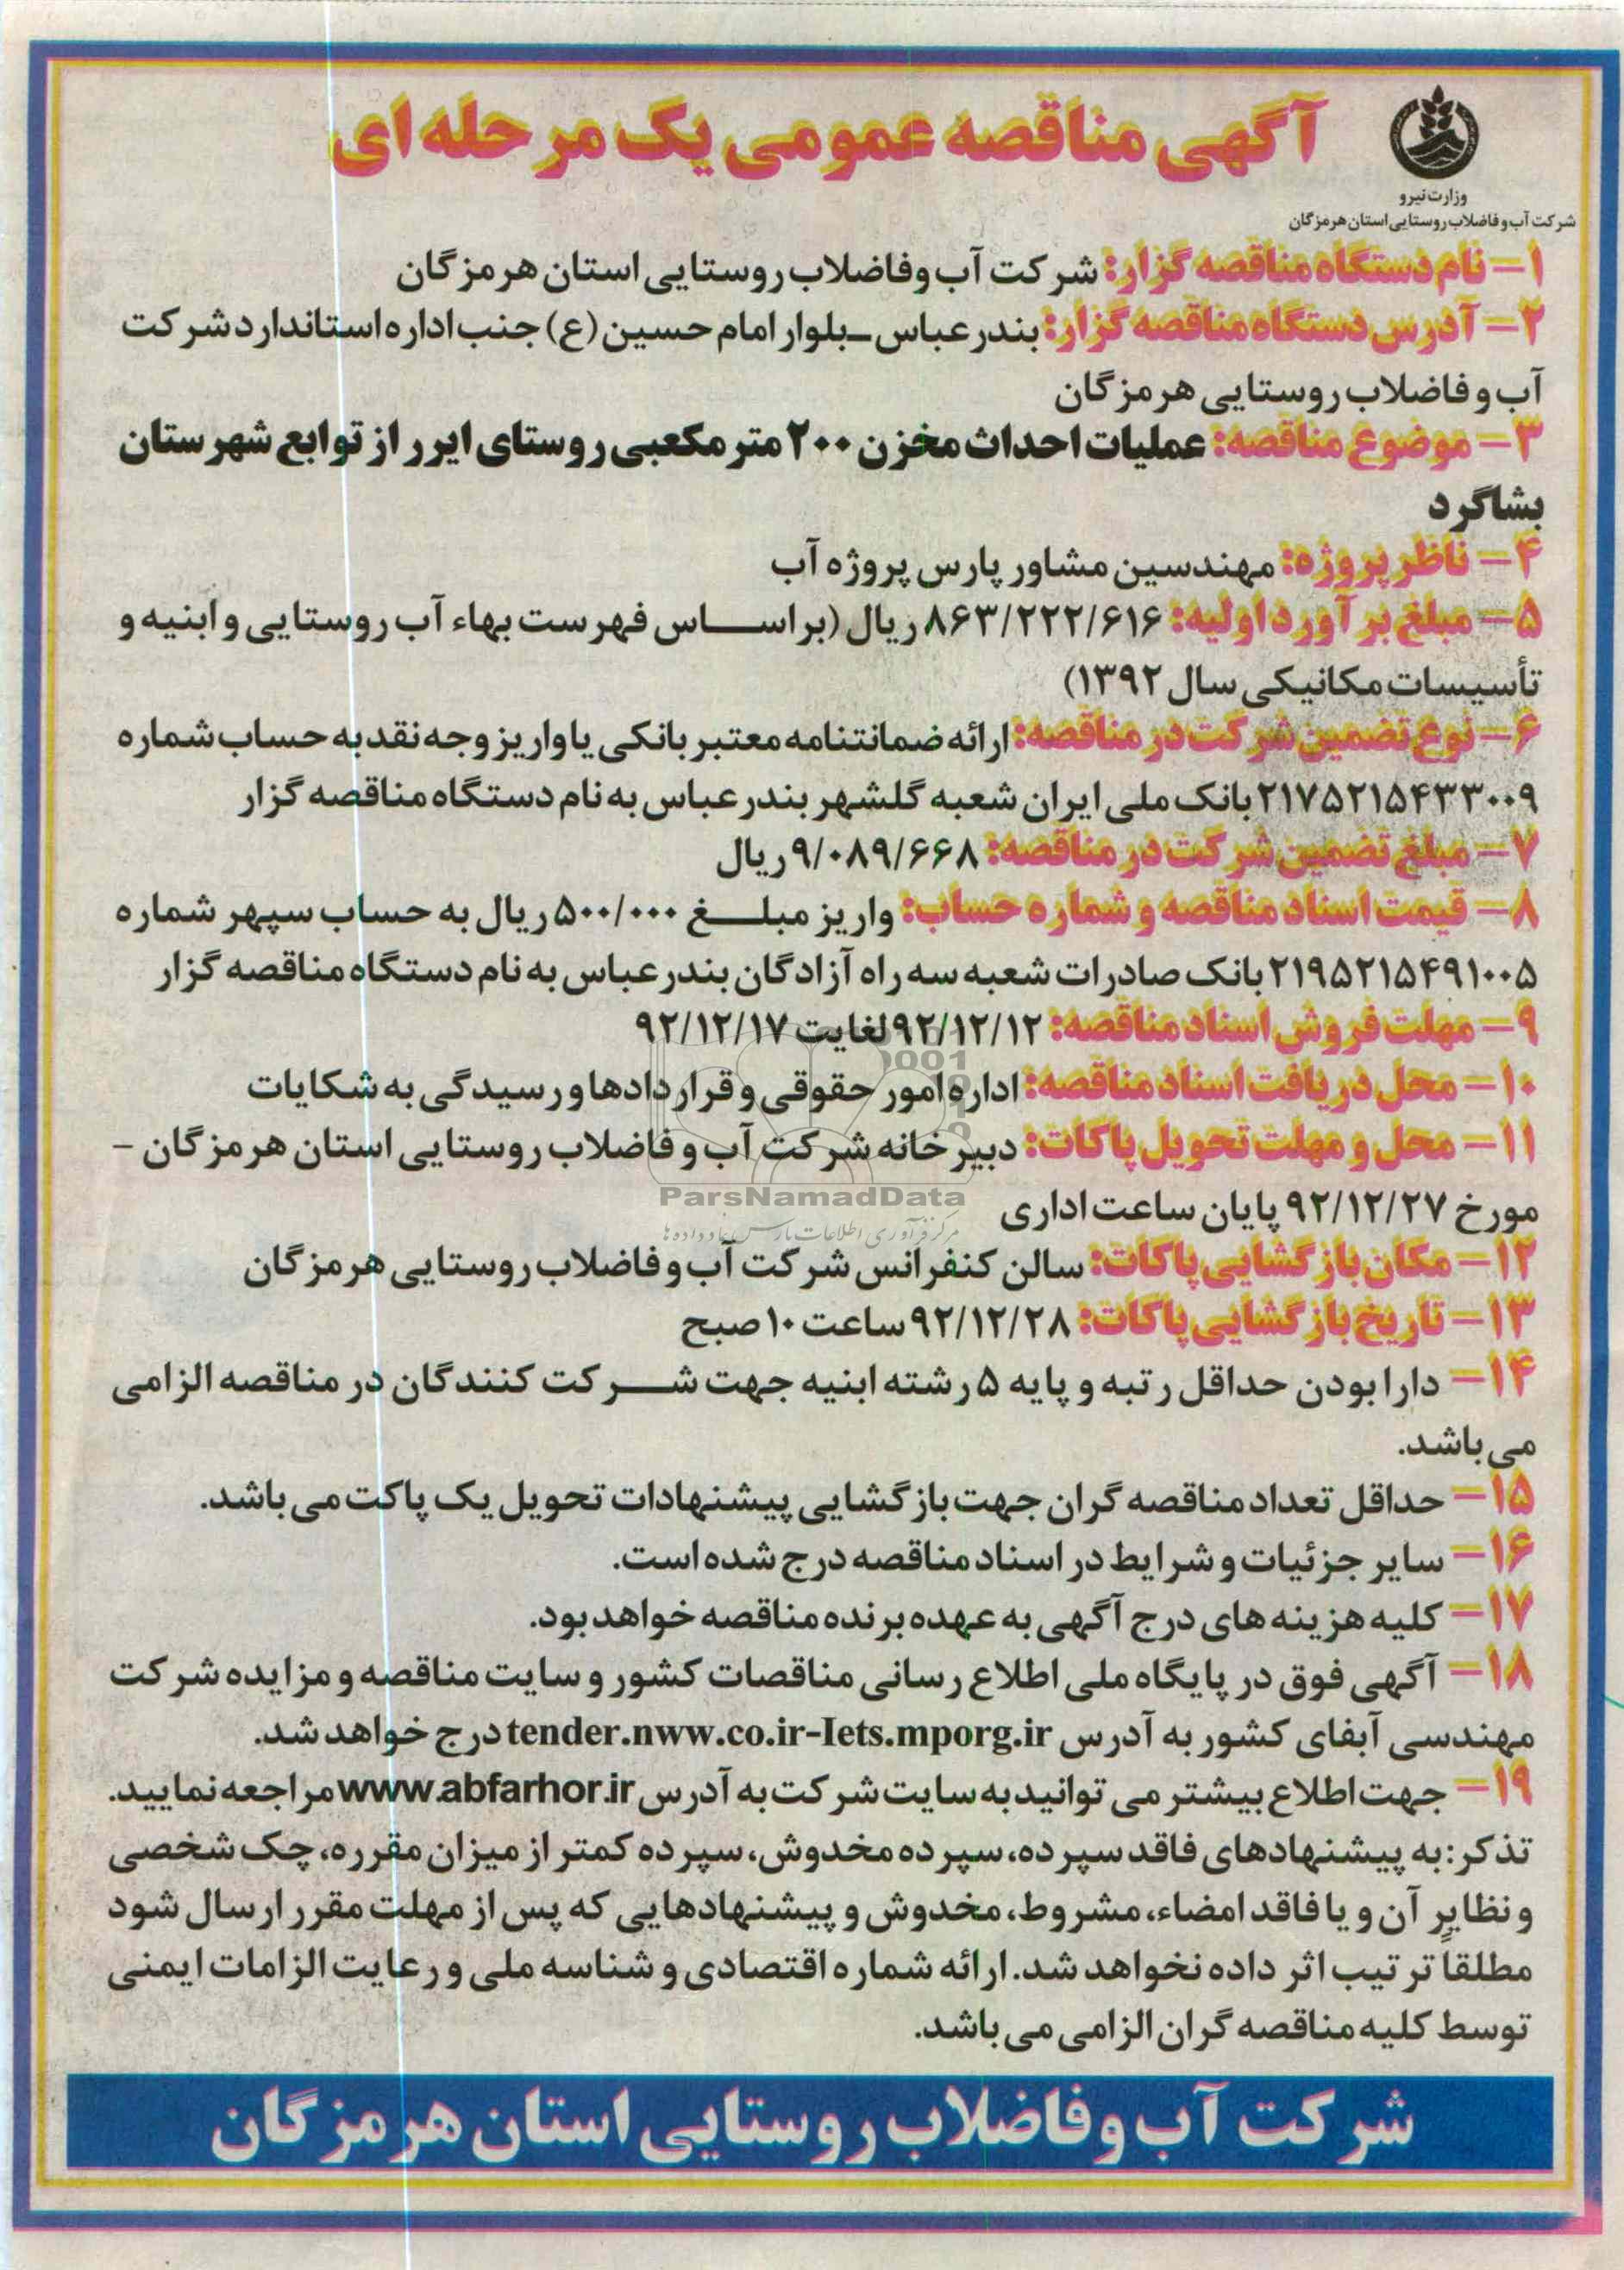 آگهی مناقصه عمومی یک مرحله ای
وزارت نیرو
شرکت آب و فاضلاب روستایی استان هرمزگان
۱- نام دستگاه مناقصه گزار: شرکت آب و فاضلاب روستایی استان هرمزگان
۲- آدرس دستگاه مناقصه گزار: بندرعباس - بلوار امام حسین (ع) جنب اداره استاندارد شرکت
آب و فاضلاب روستایی هرمزگان
۳- موضوع مناقصه: عملیات احداث مخزن ۲۰۰ متر مکعبی روستای ایرر از توابع شهرستان
بشاگرد
۴- ناظر پروژه: مهندسین مشاور پارس پروژه آب
۵- مبلغ برآورد اولیه: ۸۶۳/۲۲۲/۶۱۶ ریال (براساس فهرست بهاء آب روستایی و ابنیه و
تأسیسات مکانیکی سال ۱۳۹۲)
۶- نوع تضمین شرکت در مناقصه: ارائه ضمانتنامه معتبر بانکی یا واریز وجه نقد به حساب شماره
۲۱۷۵۲۱۵۴۳۳۰۰۹ بانک ملی ایران شعبه گلشهر بندرعباس به نام دستگاه مناقصه گزار
۷- مبلغ تضمین شرکت در مناقصه: ۹/۰۸۹/۶۶۸ ریال
۸- قیمت اسناد مناقصه و شماره حساب: واریز مبلغ ۵۰۰/۰۰۰ ریال به حساب سپهر شماره
۲۱۹۵۲۱۵۴۹۱۰۰۵ بانک صادرات شعبه سه راه آزادگان بندرعباس به نام دستگاه مناقصه گزار
۹- مهلت فروش اسناد مناقصه: ۹۲/۱۲/۱۲ لغایت ۹۲/۱۲/۱۷
۱۰- محل دریافت اسناد مناقصه: اداره امور حقوقی و قراردادها و رسیدگی به شکایات
۱۱- محل و مهلت تحویل پاکات: دبیرخانه شرکت آب و فاضلاب روستایی استان هرمزگان -
ParsNamadData
مورخ ۹۲/۱۲/۲۷ پایان ساعت اداری
مرکز فرآوری اطلاعات پارس نماد داده ها
۱۲- مکان بازگشایی پاکات: سالن کنفرانس شرکت آب و فاضلاب روستایی هرمزگان
۱۳- تاریخ بازگشایی پاکات: ۹۲/۱۲/۲۸ ساعت ۱۰ صبح
۱۴- دارا بودن حداقل رتبه و پایه ۵ رشته ابنیه جهت شرکت کنندگان در مناقصه الزامی
می باشد.
۱۵- حداقل تعداد مناقصه گران جهت بازگشایی پیشنهادات تحویل یک پاکت می باشد.
۱۶- سایر جزئیات و شرایط در اسناد مناقصه درج شده است.
۱۷- کلیه هزینه های درج آگهی به عهده برنده مناقصه خواهد بود.
۱۸- آگهی فوق در پایگاه ملی اطلاع رسانی مناقصات کشور و سایت مناقصه و مزایده شرکت
مهندسی آبفای کشور به آدرس tender.nww.co.ir-Iets.mporg.ir درج خواهد شد.
۱۹- جهت اطلاع بیشتر می توانید به سایت شرکت به آدرس www.abfarhor.ir مراجعه نمایید.
تذکر: به پیشنهادهای فاقد سپرده، سپرده مخدوش، سپرده کمتر از میزان مقرره، چک شخصی
و نظایر آن و یا فاقد امضاء، مشروط، مخدوش و پیشنهادهایی که پس از مهلت مقرر ارسال شود
مطلقاً ترتیب اثر داده نخواهد شد. ارائه شماره اقتصادی و شناسه ملی و رعایت الزامات ایمنی
توسط کلیه مناقصه گران الزامی می باشد.
شرکت آب و فاضلاب روستایی استان هرمزگان